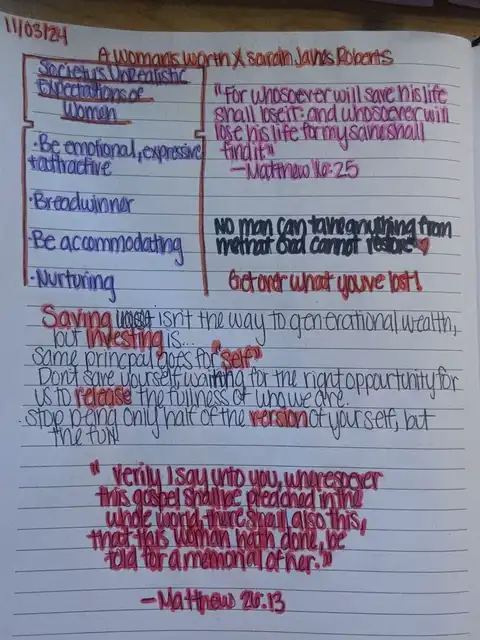 11/03/24
A Woman's Worth X Sarah Jakes Roberts
Society's Unrealistic
Expectations of
Women
· Be emotional, expressive
+ attractive
· Breadwinner
· Be accommodating
· Nurturing
"For whosoever will save his life
shall lose it: and whosoever will
lose his life for my sake shall
find it"
- Matthew 16:25
NO man can take anything from
me that God cannot restore
Get over what you've lost!
Saving isn't the way to generational wealth,
but investing is...
same principal goes for "self"
Don't save yourself waiting for the right oppourtunity for
us to release the fullness of who we are.
· stop being only half of the version of yourself, but
the full!
" Verily I say unto you, wheresoever
this gospel shall be preached in the
whole world, there shall also this,
that this woman hath done, be
told for a memorial of her."
- Matthew 26:13